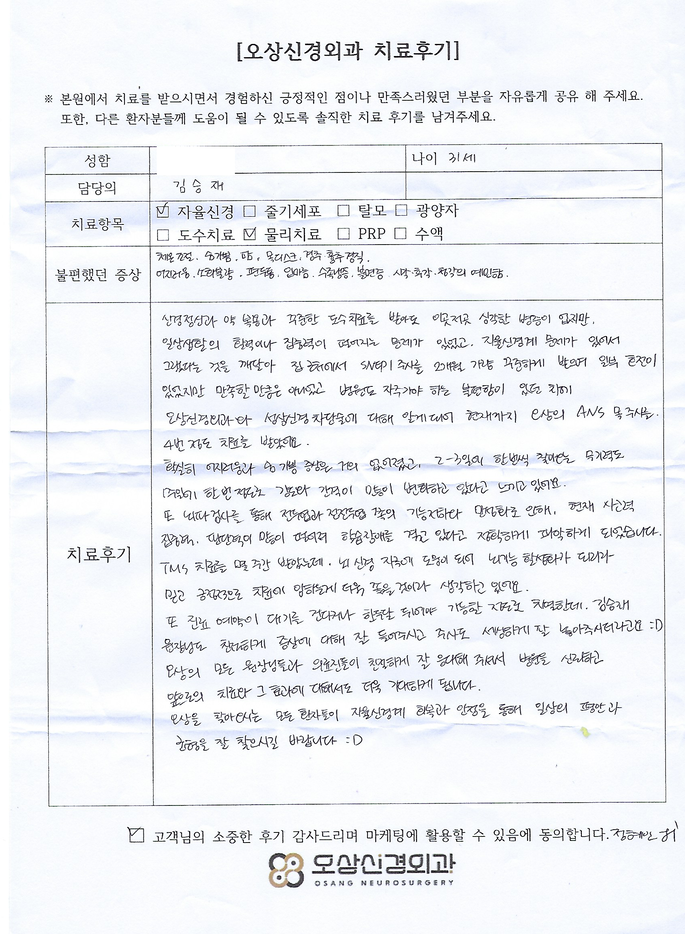 [오상신경외과 치료후기]
※ 본원에서 치료를 받으시면서 경험하신 긍정적인 점이나 만족스러웠던 부분을 자유롭게 공유 해 주세요.
또한, 다른 환자분들께 도움이 될 수 있도록 솔직한 치료 후기를 남겨주세요.
성함
나이 31세
담당의 김승재
치료항목
☑ 자율신경 ☐ 줄기세포 ☐ 탈모 ☐ 광양자
☐ 도수치료 ☑ 물리치료 ☐ PRP ☐ 수액
불편했던 증상
숨가쁨, 목디스크, 경추 흉추경직,
어지러움, 소화불량, 편두통, 수족냉증, 불면증, 시각·청각·
치료후기
신경정신과 약 복용과 꾸준한 도수치료를 받아도 이곳저곳 심각한 병증이 있지만,
일상생활의 활력이나 집중력이 떨어지는 문제가 있었고, 자율신경계 문제가 있어서
그랬다는 것을 깨달아 집 근처에서 주사를 2개월 가량 꾸준하게 받으며 일부 호전이
있었지만 만족할 만큼은 아니었고 병원도 자주가야 하는 불편함이 있던 차에
오상신경외과와 성상신경차단술에 대해 알게 되어 현재까지 오상의 ANS 목주사를
4번 정도 치료를 받았어요.
확실히 어지러움과 숨가쁨 증상은 거의 없어졌고, 2-3일에 한번씩 찾아오는 무기력도
한번 정도로 강도와 간격이 많이 변화하고 있다고 느끼고 있어요.
또 뇌파검사를 통해 전두엽과 전전두엽 쪽의 기능저하와 불활성화로 인해, 현재 사고력
집중력, 판단력이 많이 떨어져 학습장애를 겪고 있다고 정확하게 파악하게 되었습니다.
TMS 치료는 몇 주간 받았는데, 뇌 신경 자극에 도움이 되어 뇌기능 활성화가 되리라
믿고 긍정적으로 치료에 임하는게 더욱 좋을것이라 생각하고 있어요.
또 진료 예약이 대기를 건다거나 한두달 뒤에야 가능할 정도로 치열한데, 김승재
원장님도 친절하게 증상에 대해 잘 들어주시고 주사도 세심하게 잘 놓아주시더라고요 :D
오상의 모든 원장님들과 의료진들이 친절하게 잘 응대해 주셔서 병원을 신뢰하고
앞으로의 치료와 그 효과에 대해서도 더욱 기대하게 됩니다.
오상을 찾아오시는 모든 환자들이 자율신경계 회복과 안정을 통해 일상의 평안과
균형을 잘 찾으시길 바랍니다 :D
☑ 고객님의 소중한 후기 감사드리며 마케팅에 활용할 수 있음에 동의합니다.
오상신경외과
OSANG NEUROSURGERY